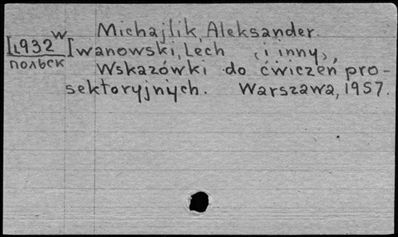 Michajlik, Aleksander.
W
I1932 Iwanowski, Lech (i inny),
польск
Wskazówki do ćwiczeń pro-
sektoryjnych. Warszawa, 1957.